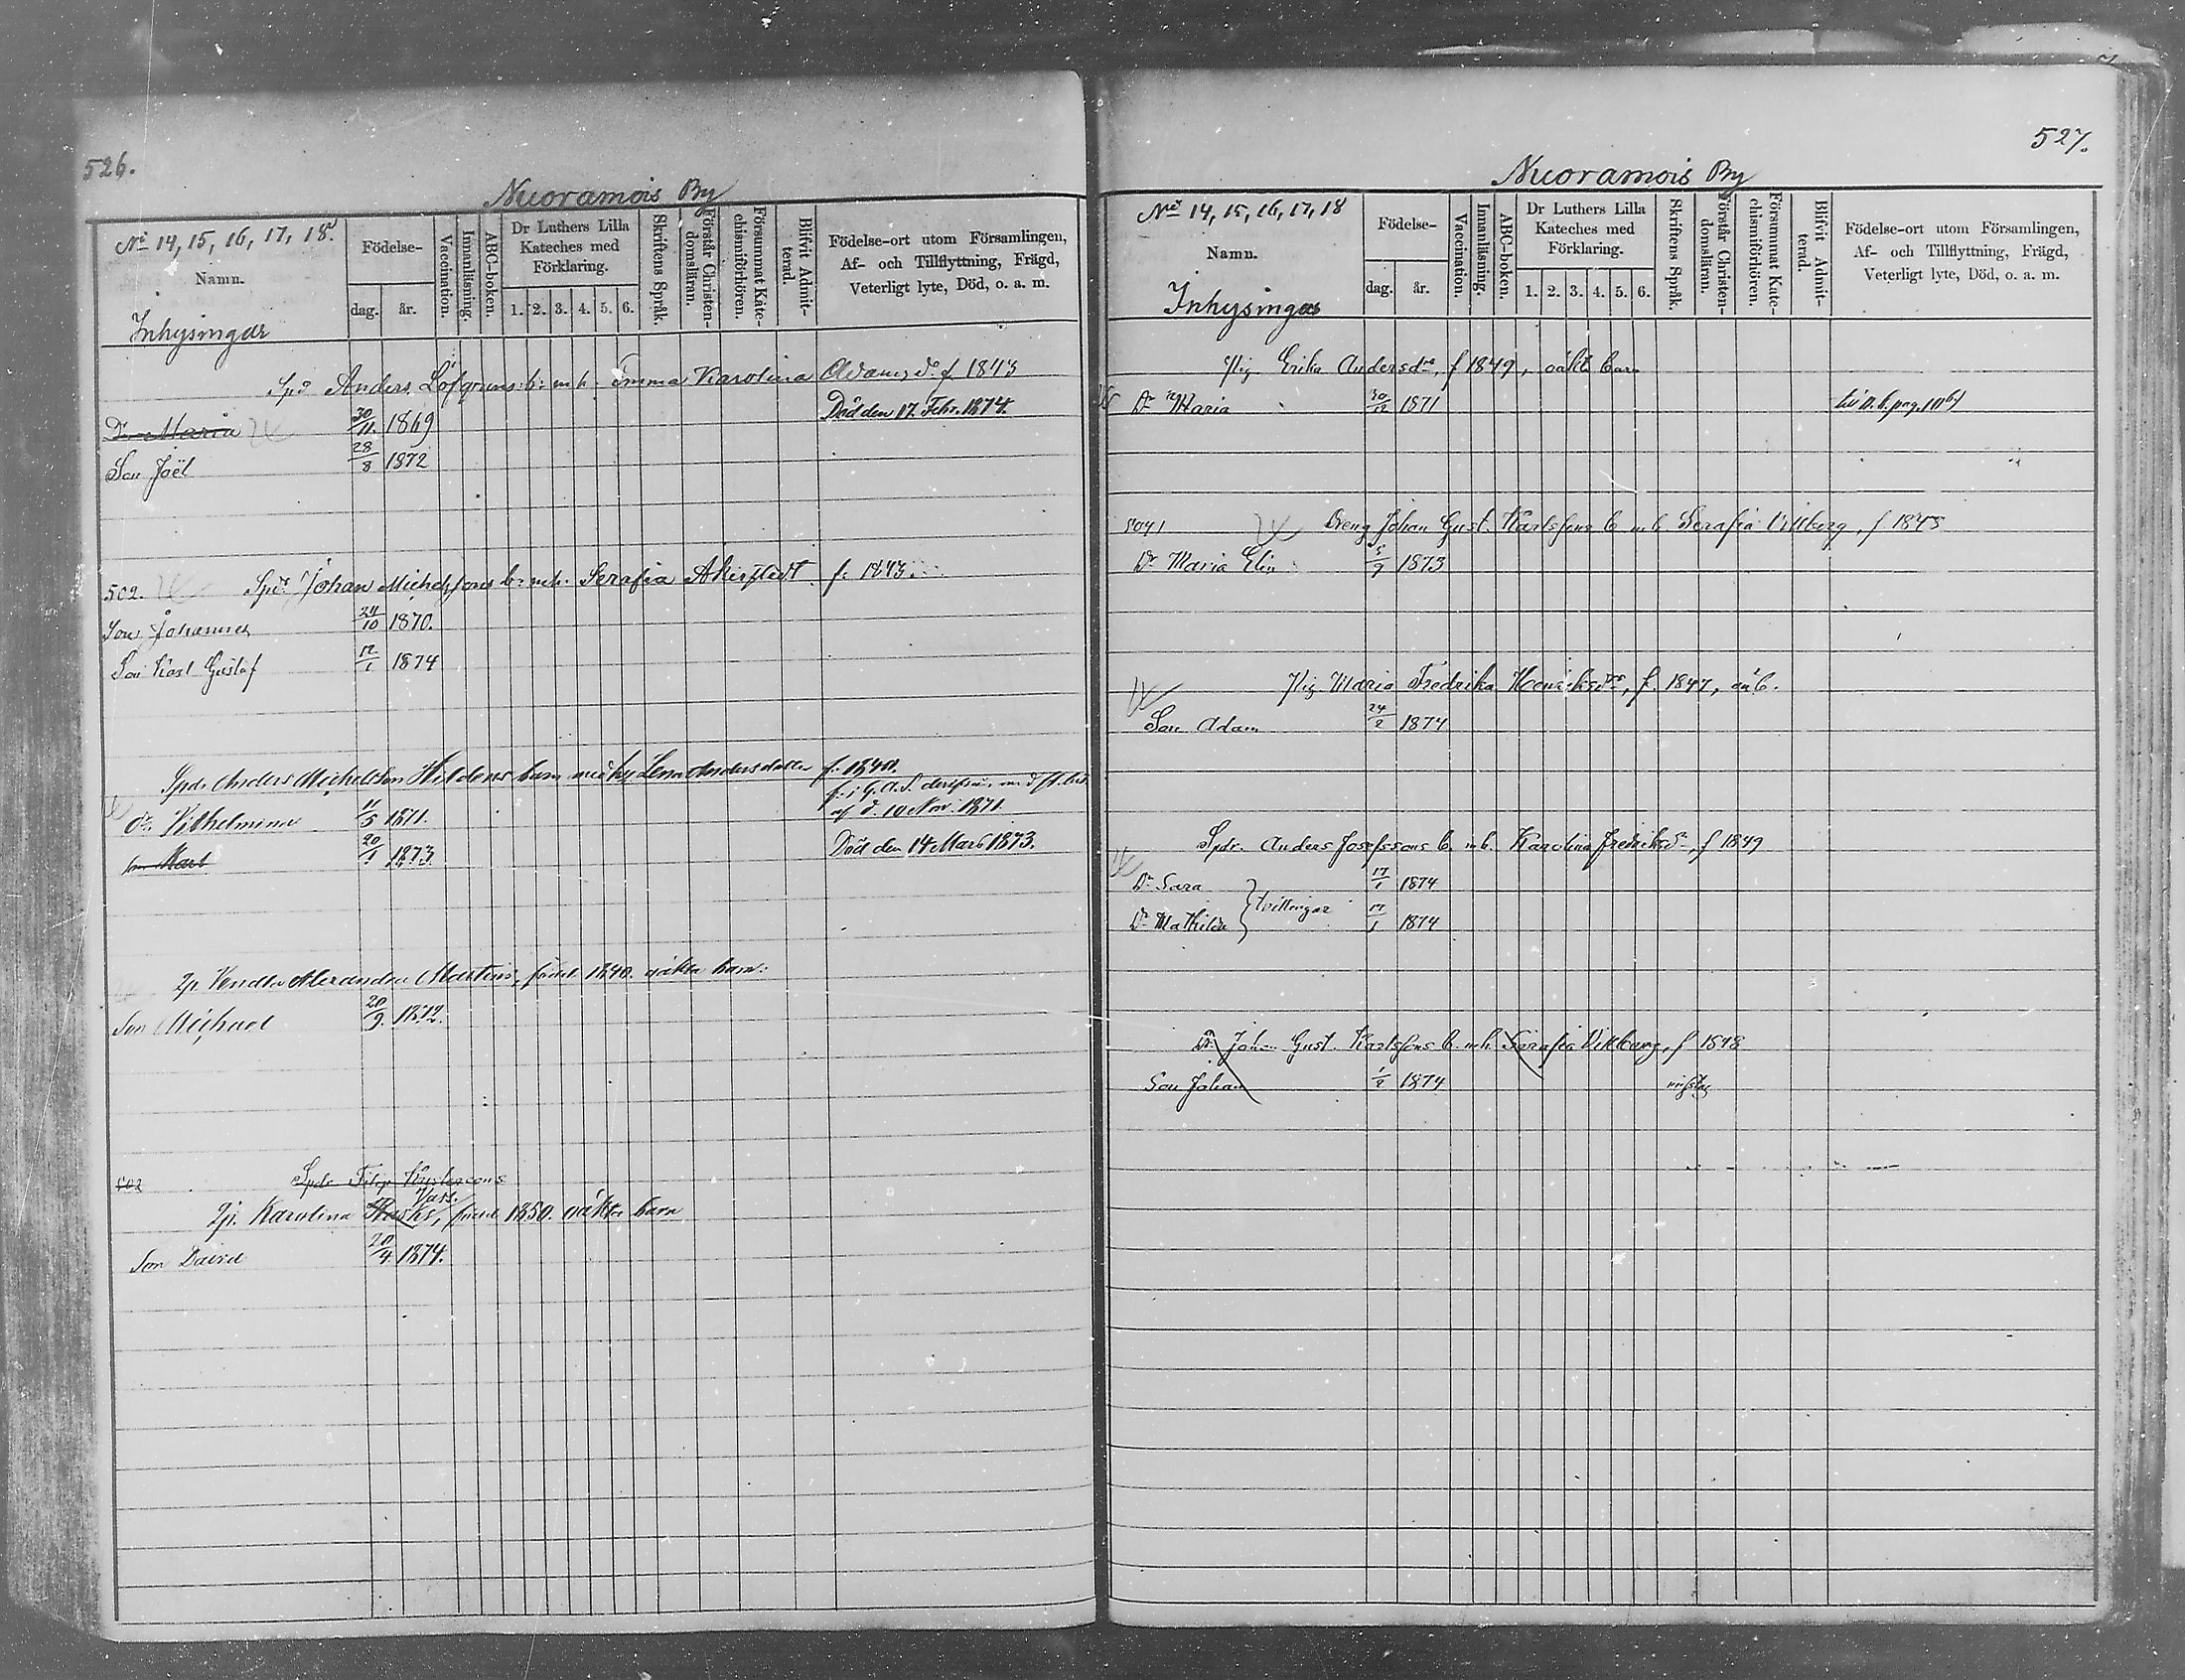 526.
Nuoramois By
No 14, 15, 16, 17, 18.
Namn.
Inhysingar
Födelse-
dag.
år.
Vaccination.
Innanläsning.
ABC-boken.
Dr Luthers Lilla
Kateches med
Förklaring.
1. 2. 3. 4. 5. 6.
Skriftens Språk.
Förstår Christen-
domsläran.
Försummat Kate-
chismiförhören.
Blifvit Admit-
terad.
Födelse-ort utom Församlingen,
Af- och Tillflyttning, Frägd,
Veterligt lyte, Död, o. a. m.
Anders Löfgrens b: m h. Emma Karolina Adamsdr f. 1843
Dr Maria 30/11. 1869 Död den 17. Febr. 1874.
Son Joël 28/8 1872
502. Johan Michelssons b: m h: Serafia Åkerstedt f. 1843.
Son Johannes 24/10 1870.
Son Karl Gustaf 12/1 1874
Anders Michelsson Hildens barn med h Lena Andersdotter f. 1840.
af d. 10 Nov. 1871.
Dr. Vilhelmina 11/5 1871.
Son Karl 20/1 1873. Död den 14 Mars 1873.
Vendla Alexandra Martins, född 1840. oäkta barn:
Son Michael 20/9. 1872.
502
Spdr Filip
Vass.
Karolina född 1850. oäkta barn
Son David 20/4. 1874.
527.
Nuoramois By
No 14, 15, 16, 17, 18
Namn.
Inhysingar
Födelse-
dag.
år.
Vaccination.
Innanläsning.
ABC-boken.
Dr Luthers Lilla
Kateches med
Förklaring.
1. 2. 3. 4. 5. 6.
Skriftens Språk.
Förstår Christen-
domsläran.
Försummat Kate-
chismiförhören.
Blifvit Admit-
terad.
Födelse-ort utom Församlingen,
Af- och Tillflyttning, Frägd,
Veterligt lyte, Död, o. a. m.
Pig Erika Andersdr, f 1849, oäkta barn
Dr Maria 30/12 1871
Dreng Johan Gust. Karlssons b m h Serafia Villberg, f 1848
Dr Maria Elin 5/9 1873
Pig. Maria Fredrika Henriksdr, f. 1847, oä b.
Son Adam 24/2 1874
Spdr. Anders Josefssons b. m h. Karolina Fredriksdr f 1849
Dr Sara 17/1 1874
tvillingar
Dr Mathilda 17/1 1874
Dr. Johan Gust. Karlssons b. m h. Serafia Villberg, f 1848
Son Johan 1/2 1874 misstag